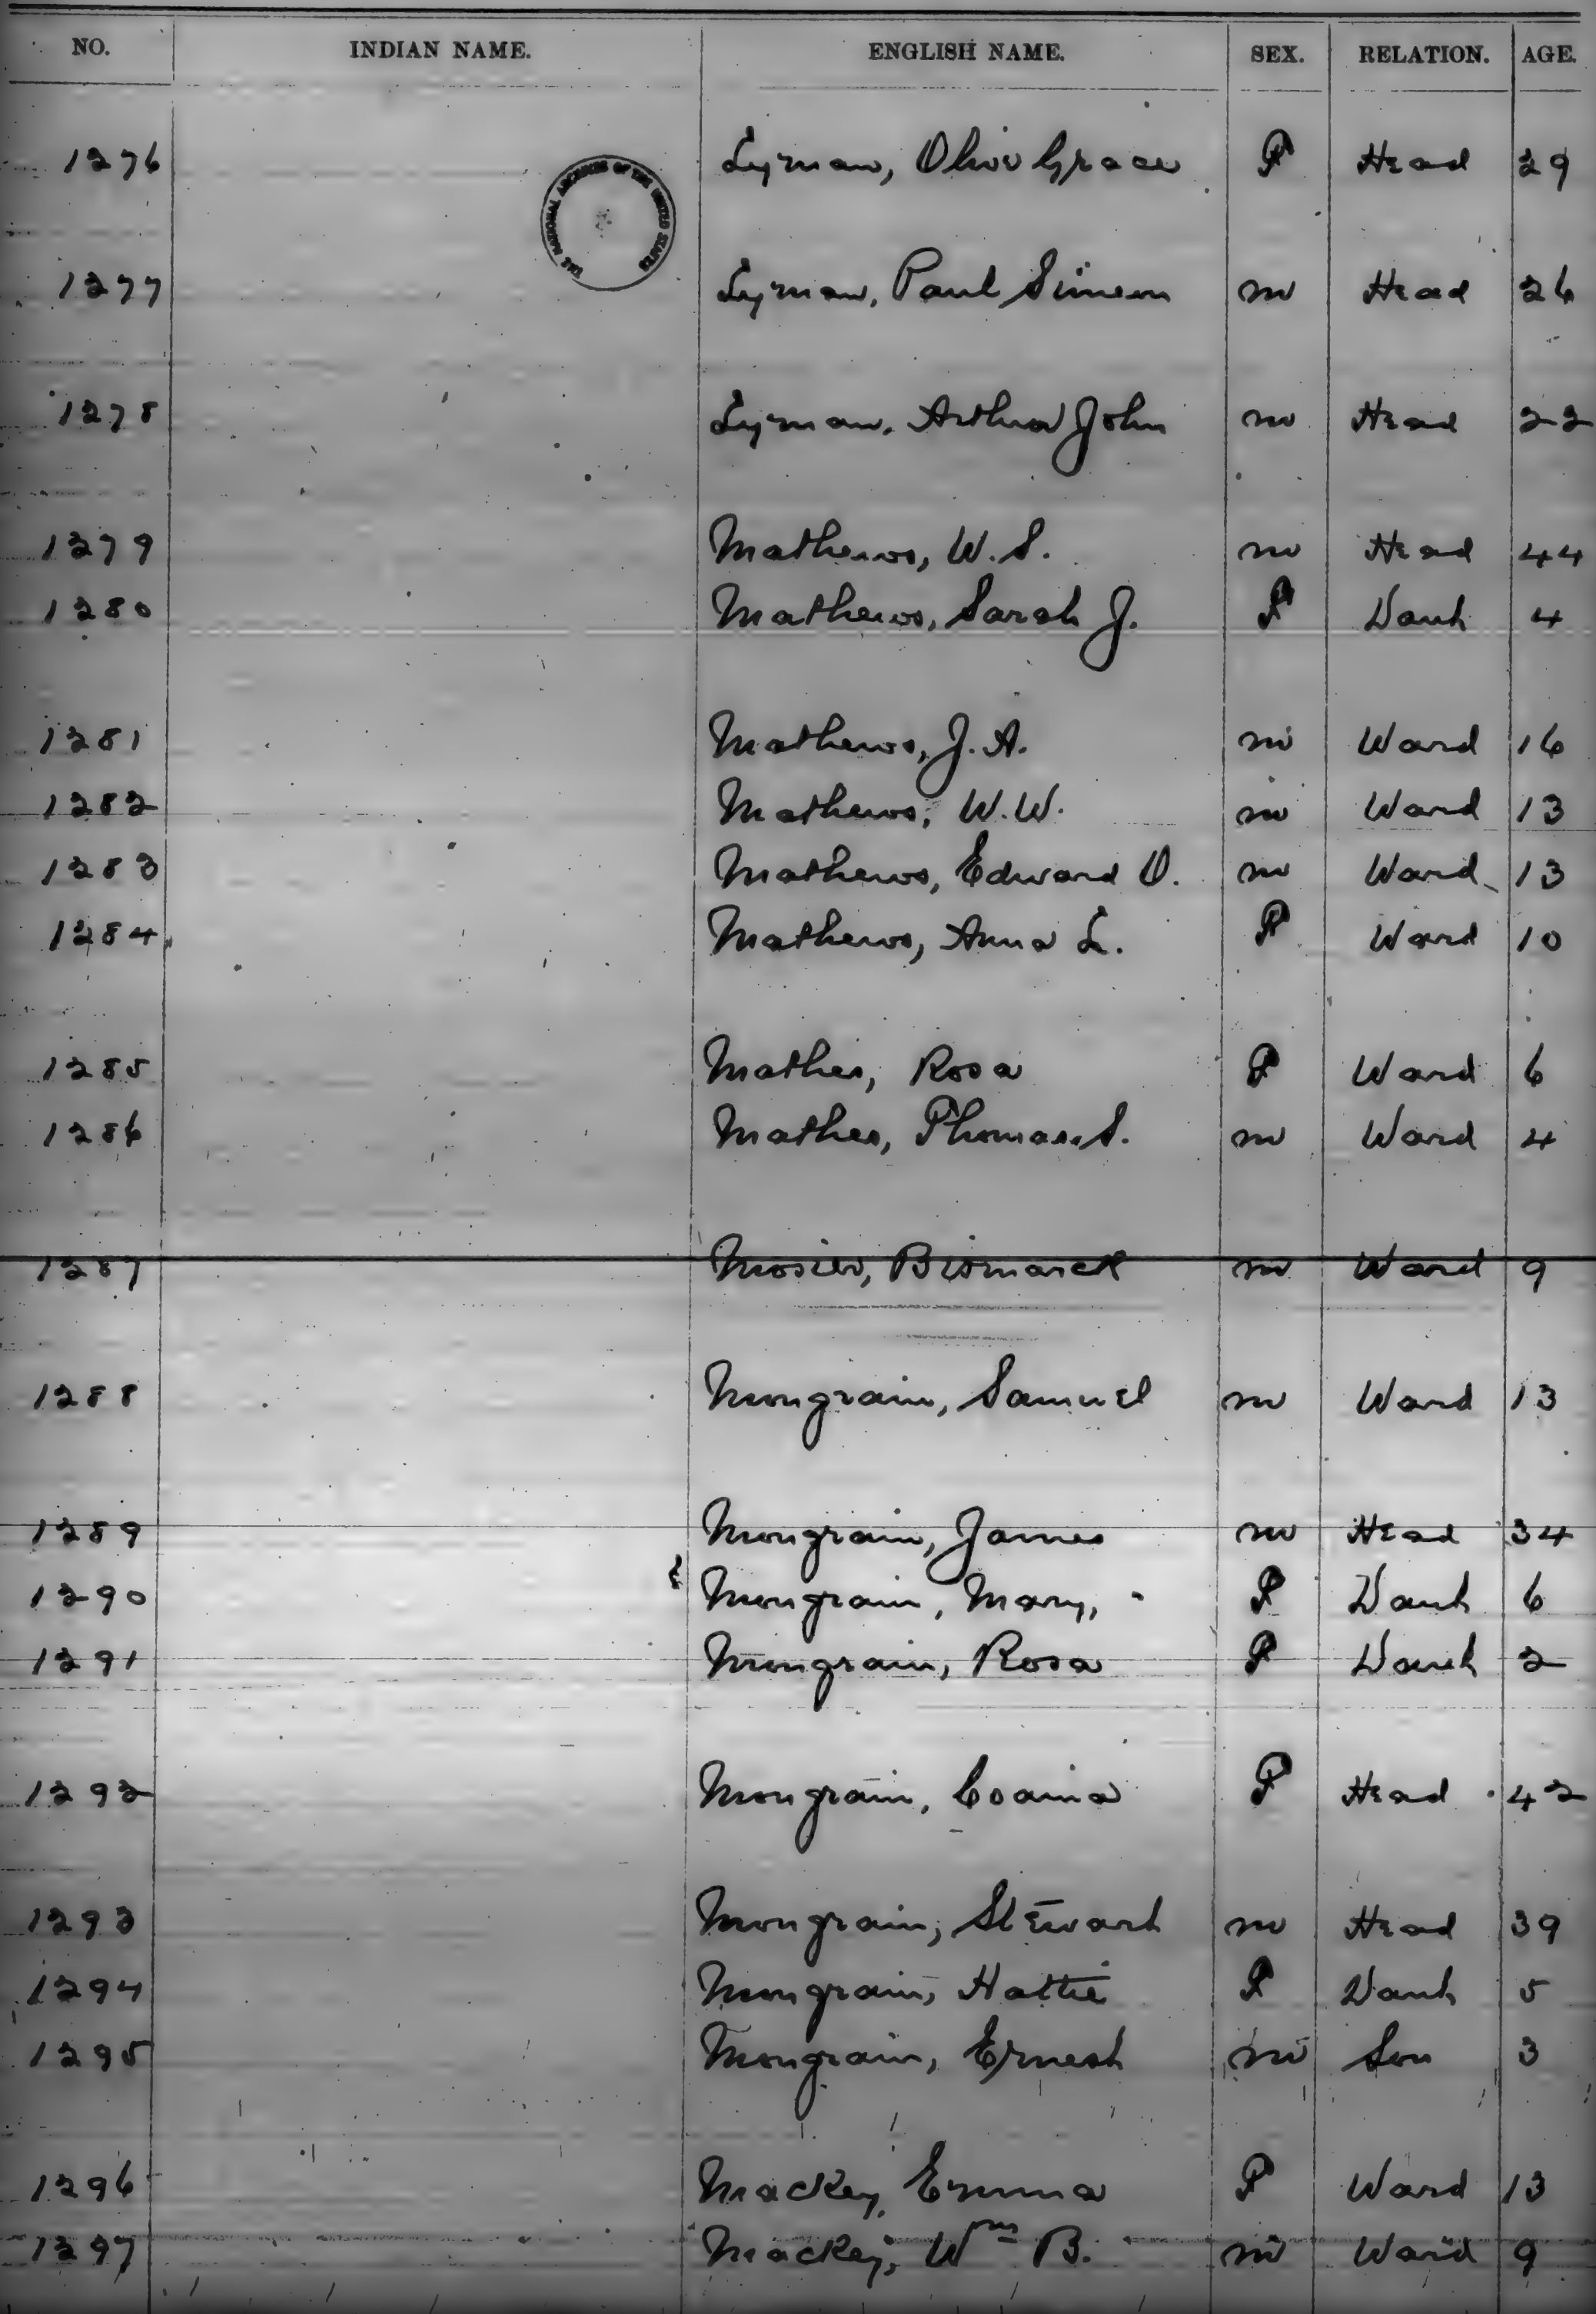 NO. INDIAN NAME. ENGLISH NAME. SEX. RELATION. AGE.
1276 Lyman, Olive Grace F Head 29
THE NATIONAL ARCHIVES OF THE UNITED STATES
1277 Lyman, Paul Simeon M Head 26
1278 Lyman, Arthur John M Head 22
1279 Mathews, W. S. M Head 44
1280 Mathews, Sarah J. F Dauh 4
1281 Mathews, J. A. M Ward 16
1282 Mathews, W. W. M Ward 13
1283 Mathews, Edward O. M Ward 13
1284 Mathews, Anna L. F Ward 10
1285 Mathes, Rosa F Ward 6
1286 Mathes, Thomas S. M Ward 4
1287 Mosier, Bismarck M Ward 9
1288 Mongrain, Samuel M Ward 13
1289 Mongrain, James M Head 34
1290 Mongrain, Mary, F Dauh 6
1291 Mongrain, Rosa F Dauh 2
1292 Mongrain, Coaina F Head 42
1293 Mongrain, Stewart M Head 39
1294 Mongrain, Hattie F Dauh 5
1295 Mongrain, Ernest M Son 3
1296 Mackey, Emma F Ward 13
1297 Mackey, Wm B. M Ward 9